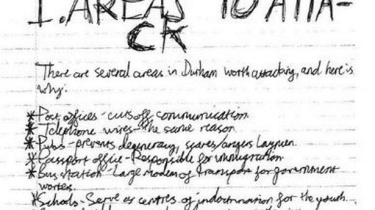 1. AREAS TO ATTA-
CK
There are several areas in Durham worth attacking, and here is
why:
*Post offices - cuts off communication
*Telephone wires - the same reason
*Pubs - prevents degeneracy, scares/angers laymen
*Passport office - Responsible for immigration
*Bus station - Large modem of transport for government
*Schools - Serve as centres of indoctrination for the youth